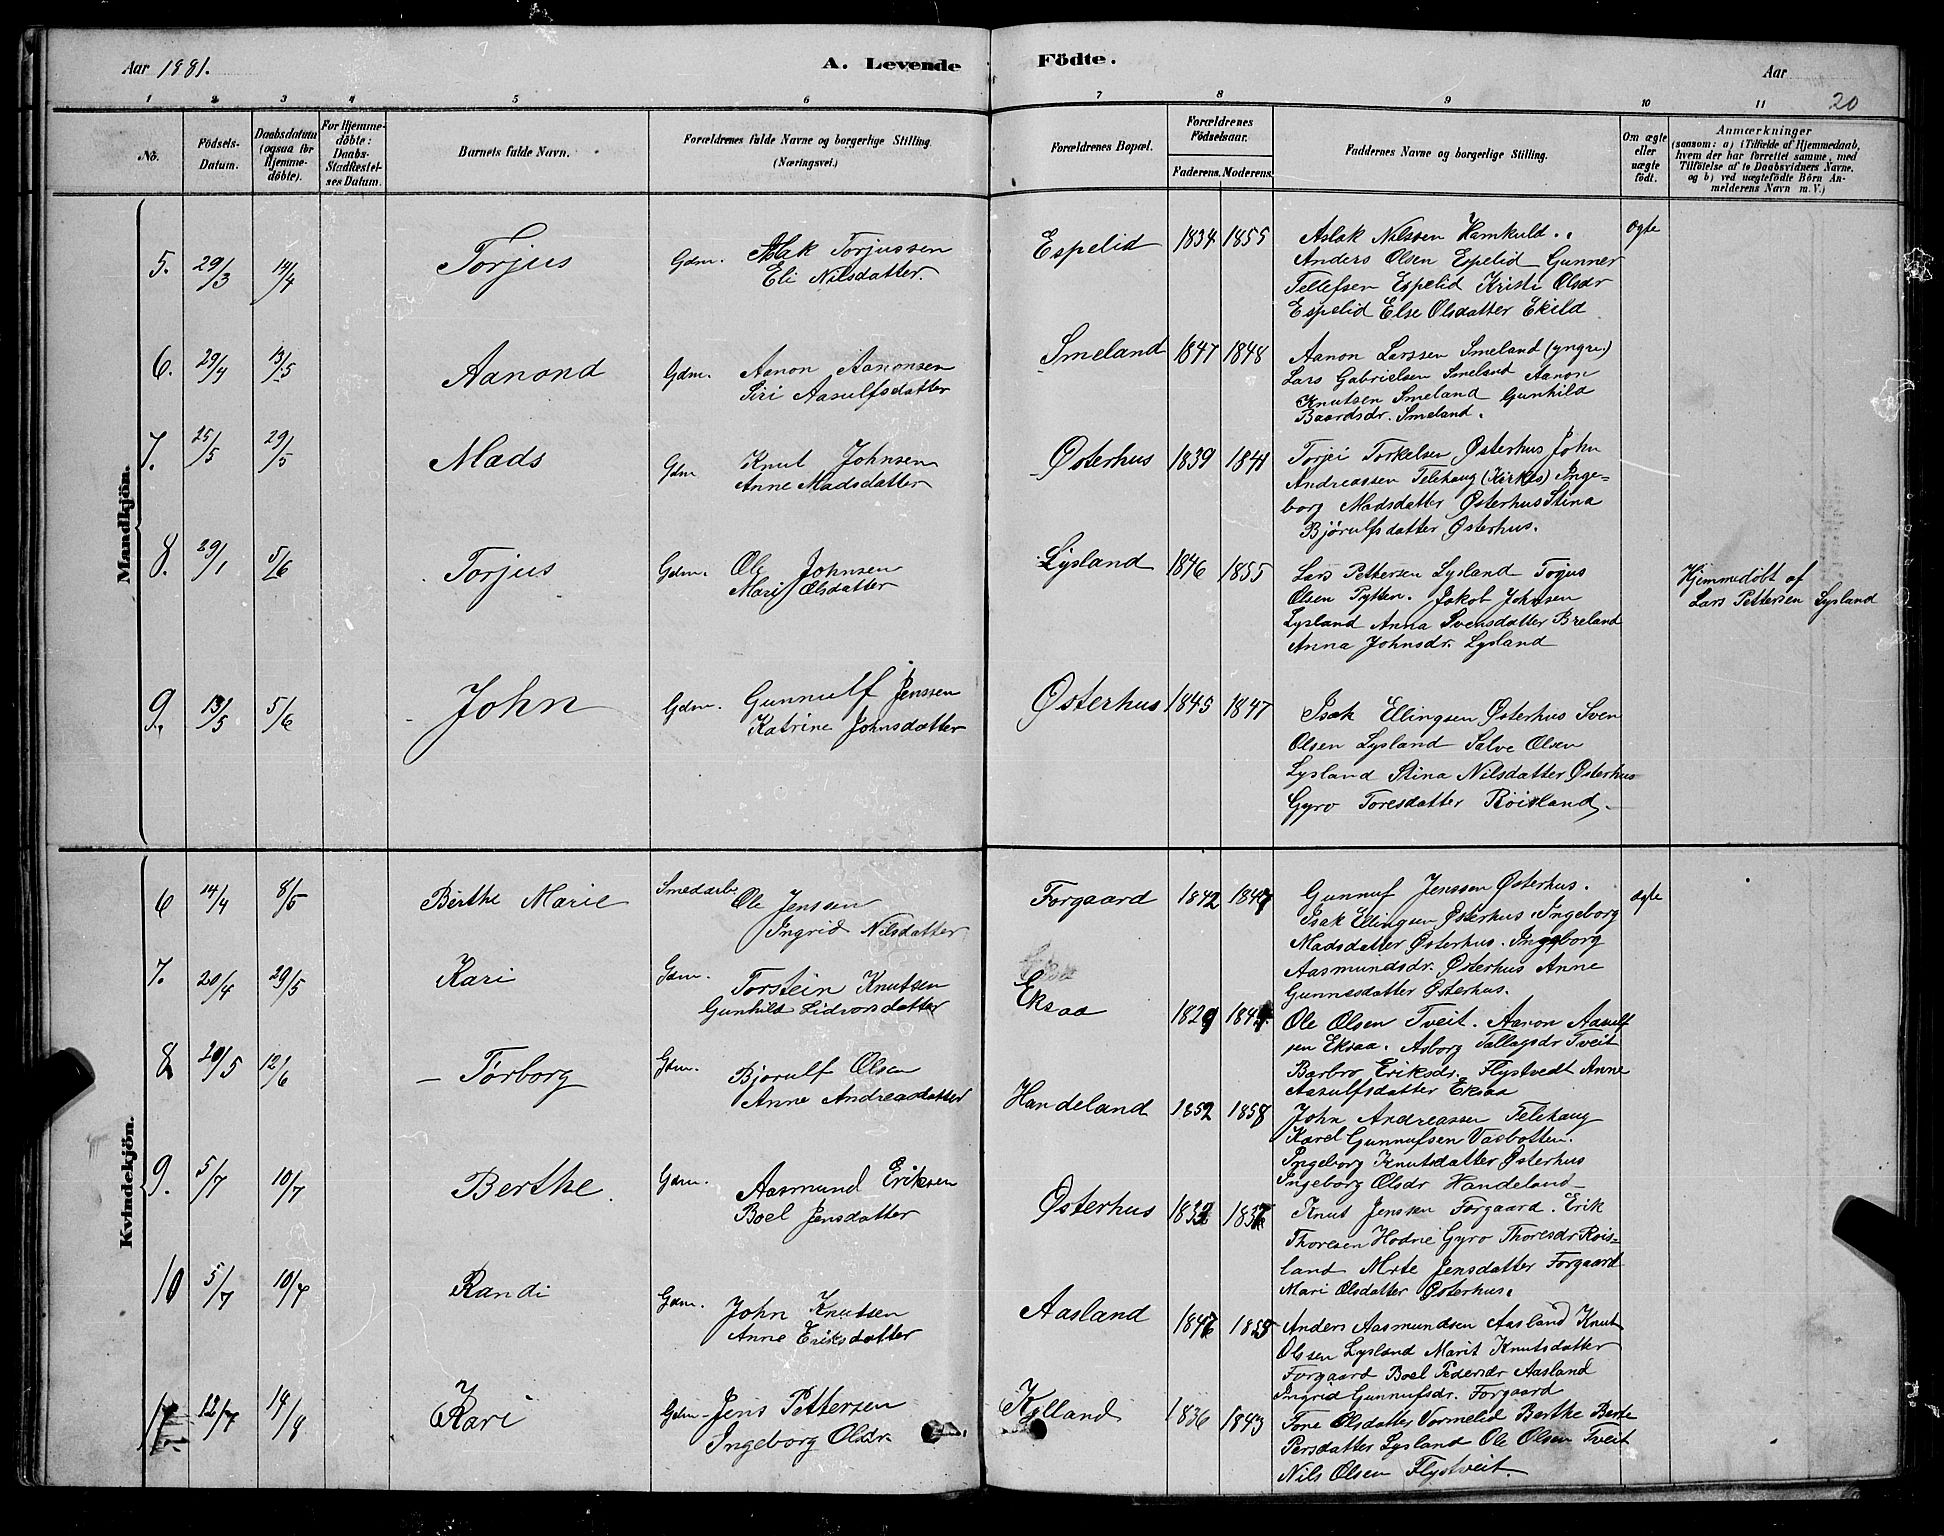 Aar 1881. A. Levende Födte. Aar
20
1 2 3 4 5 6 7 8 9 10 11
No. Födsels-Datum. Daabsdatum (ogsaa for Hjemmedöbte). For Hjemmedöbte: Daabs-Stadfæstelses Datum. Barnets fulde Navn. Forældrenes fulde Navne og borgerlige Stilling. (Næringsvei.) Forældrenes Bopæl. Forældrenes Födselsaar. Faderens. Moderens. Faddernes Navne og borgerlige Stilling. Om ægte eller uægte födt. Anmærkninger (saasom: a) i Tilfælde af Hjemmedaab, hvem der har forrettet samme, med Tilföielse af to Daabsvidners Navne. og b) ved uægtefödte Börn Anmelderens Navn m. V.)
Mandkjön.
5. 29/3 14/4 Torjus Gdm. Aslak Torjussen Espelid 1834 1855 Aslak Nilsven Hamkuld. ægte
Eli Nilsdatter. Anders Olsen Espelid Gunner
Tellefsen Espelid Kristi Olsdr
Espelid Else Olsdatter Ekild
6. 29/4 13/5 Aanond Gdm. Aanon Aanonsen Smeland 1847 1848 Aanon Larssen Smeland (yngre.)
Siri Aasulfsdatter Lars Gabrielsen Smeland Aanon
Knutsen Smeland Gunhild
Baardsdr. Smeland.
7. 25/5 29/5 Mads Gdm Knut Johnsen Østerhus 1839 1841 Torjei Torkelsen Østerhus John
Anne Madsdatter Andreassen Telehaug (Kirkes) Inge-
borg Madsdatter Østerhus Stina
Bjørulfsdatter Østerhus.
8. 29/1 5/6 Torjus Gdm. Ole Johnsen Lysland 1846 1855 Lars Pettersen Lysland Togus Hjemmedöbt af
Mari Olsdatter Olsen Pytten. Jakob Johnsen Lars Pettersen Lysland
Lysland Anna Svensdatter Breland
Anna Johnsdr. Lysland
9. 13/5 5/6 John Gdm. Gunnulf Jenssen Østerhus 1845 1847 Isak Ellingsen Østerhus Sven
Katrine Johnsdatter Olsen Lysland Salve Olsen
Lysland Stina Nilsdatter Østerhus
Gyro Toresdatter Röisland
Kvindekjön.
6 14/4 8/5 Birthe Marie Smedarb. Ole Jenssen Forgaard 1842 Gunnuf Jenssen Østerhus. ægte
Ingrid Nilsdatter Isak Ellingsen Østerhus. Ingeborg
Madsdatter Østerhus. Ingeborg
Aasmundsdr. Østerhus Anne
Gunnesdatter Østerhus.
7. 20/4 29/5 Kari Gdm. Torstein Knutsen Eksaa 1829 Ole Olsen Tveit. Aanon Aasulf
Gunhild Lidvorsdatter sen Eksaa. Asborg Tallagsdr Tveit
Barbro Eriksdr. Flystvedt Anne
Aasulfsdatter Eksaa
8 20/5 12/6 Torborg Gdm. Bjorulf Olsen Handeland 1852 1858 John Andreassen Telehaug
Anne Andreasdatter Karel Gunnufsen Vasbotten.
Ingeborg Knutsdatter Østerhus
Ingeborg Olsdr Handeland
9. 5/7 10/7 Berthe. Gdm. Aasmund Eriksen Østerhus Knut Jenssen Forgaard. Erik
Boel Jensdatter Thoresen Hodne Gyro Thoresdr Röis-
land Mrte Jensdatter Forgaard
Mari Olsdatter Østerhus.
10 5/7 10/7 Randi Gdm. John Knutsen Aasland Anders Aasmundsen Aasland Knut
Anne Eriksdatter Olsen Lysland Marit Knutsdatter
Forgaard Boel Pedersdr Aasland
Ingrid Gunnufsdr. Forgaard
12/7 14/8 Kari Gdm. Jens Pettersen Kylland 1836 1843 Tone Olsdatter Vormelid Berthe Berte
Ingeborg Olsdr. Persdatter Lysland Ole Olsen Tveit
Nils Olsen Flystveit.